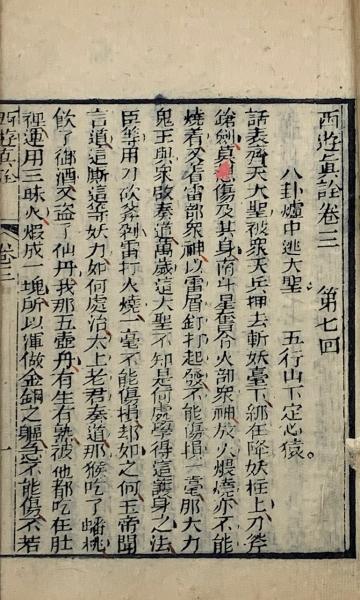 西遊真詮卷三　第七回
八卦爐中逃大聖　五行山下定心猿。
話表齊天大聖被衆天兵押去斬妖臺下綁在降妖柱上刀斧
鎗劍莫想傷及其身南斗星奮令火部衆神放火煨燒亦不能
燒着又着雷部衆神以雷屑釘打越發不能傷損一毫那大力
鬼王與衆啟奏道萬歲這大聖不知是何處學得這護身之法
臣等用刀砍斧剁雷打火燒一毫不能傷損却如之何玉帝聞
言道這廝這等妖力如何處治太上老君奏道那猴吃了蟠桃
飲了御酒又盜了仙丹我那五壺丹有生有熟被他都吃在肚
裡運用三昧火煅成一塊所以渾做金鋼之軀急不能傷不若
西遊真詮
卷三
一